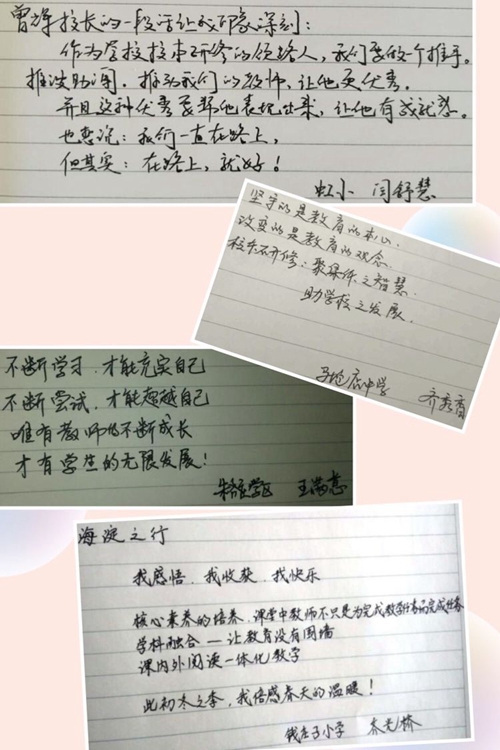 曾 校长的一段话让我印象深刻：
作为学校校本研修的领路人，我们要做个推手。
推波助澜，推动我们的教师，让他更优秀。
并且这种优秀要帮他表现出来，让他有成就感。
也想说：我们一直在路上，
但其实：在路上，就好！
虹小 闫舒慧
坚守的是教育的本心，
改变的是教育的观念
校本研修：聚集体之智慧
助学校之发展.
中学 齐秀香
不断学习，才能充实自己
不断尝试，才能超越自己
唯有教师的不断成长
才有学生的无限发展！
学区 王满意
海淀之行
我感悟，我收获，我快乐
核心素养的培养，课堂中教师不只是为完成教学任务而完成任务
学科融合 — 让教育没有围墙
课内外阅读一体化教学
此初冬之季，我倍感春天的温暖！
钱庄子小学 桥